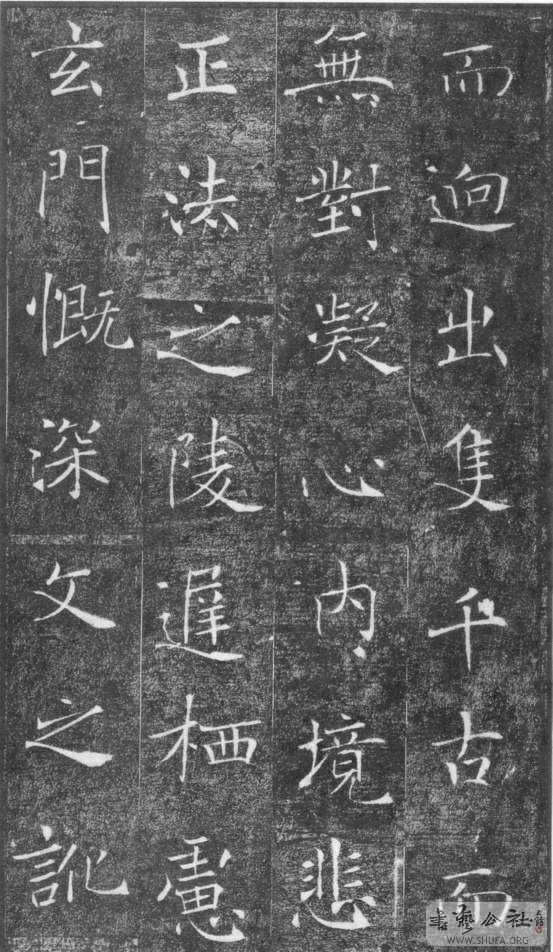 而迥出隻千古而
無對凝心内境悲
正法之陵遲栖慮
玄門慨深文之訛
書藝公社
WWW.SHUFA.ORG